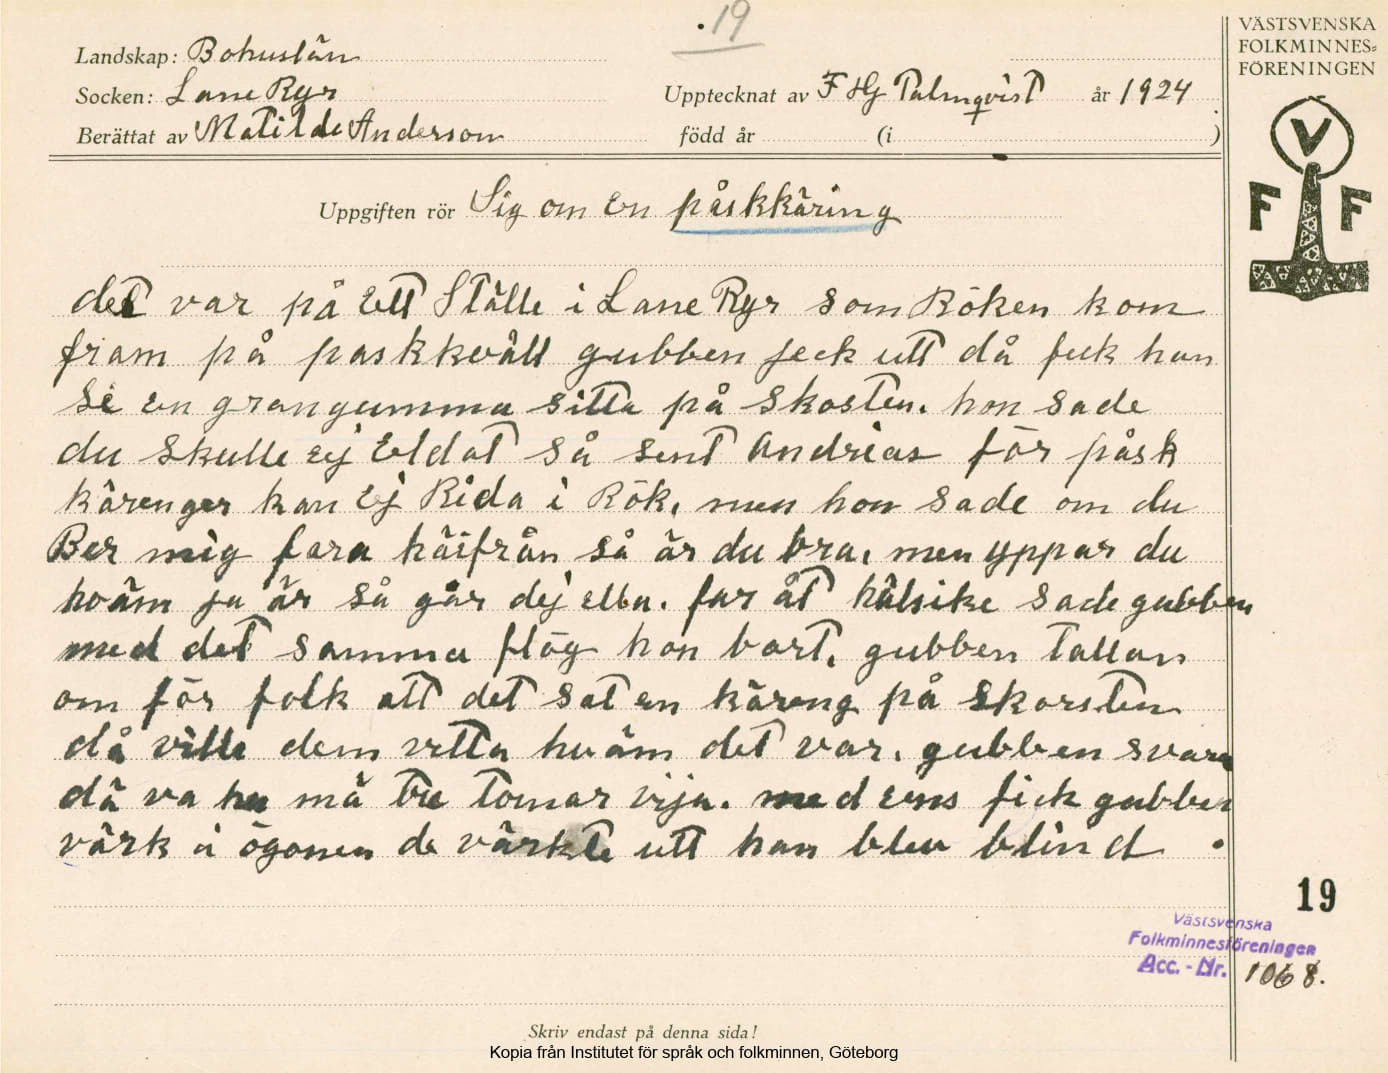 .19
Landskap: Bohuslän
Socken: Lane Ryr
Upptecknat av F Hg Palmqvist år 1924
Berättat av Matilda Anderson född år (i )
VÄSTSVENSKA
FOLKMINNES=
FÖRENINGEN
V
F F
Uppgiften rör Sig om En påskkäring
det var på Ett Ställe i Lane Ryr som Röken kom
fram på paskkväll gubben jeck utt då feck han
Se En grangumma sitta på Skosten. hon sade
du Skulle Ej Eldat så sent Andreas för påsk
kärenger kan Ej Rida i Rök, men hon sade om du
Ber mig fara häifrån så är du bra, men yppar du
hväm ja är så går dej ella. far åt hälsike sade gubben
med det samma flög hon bort, gubben tallan
om för folk att det sat en käreng på Skorsten
då ville dem vetta hväm det var. gubben svara
dä va hu mä tre tomar vija. med ens fick gubben
värk i ögonen de värkte utt han blev blind .
19
Västsvenska
Folkminnesföreningen
Acc. - Nr. 1068.
Skriv endast på denna sida!
Kopia från Institutet för språk och folkminnen, Göteborg